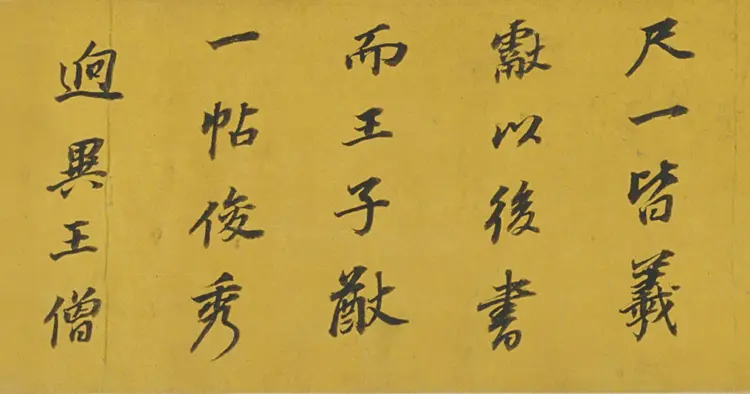 尺一皆羲
獻以後書
而王子猷
一帖俊秀
逈異王僧